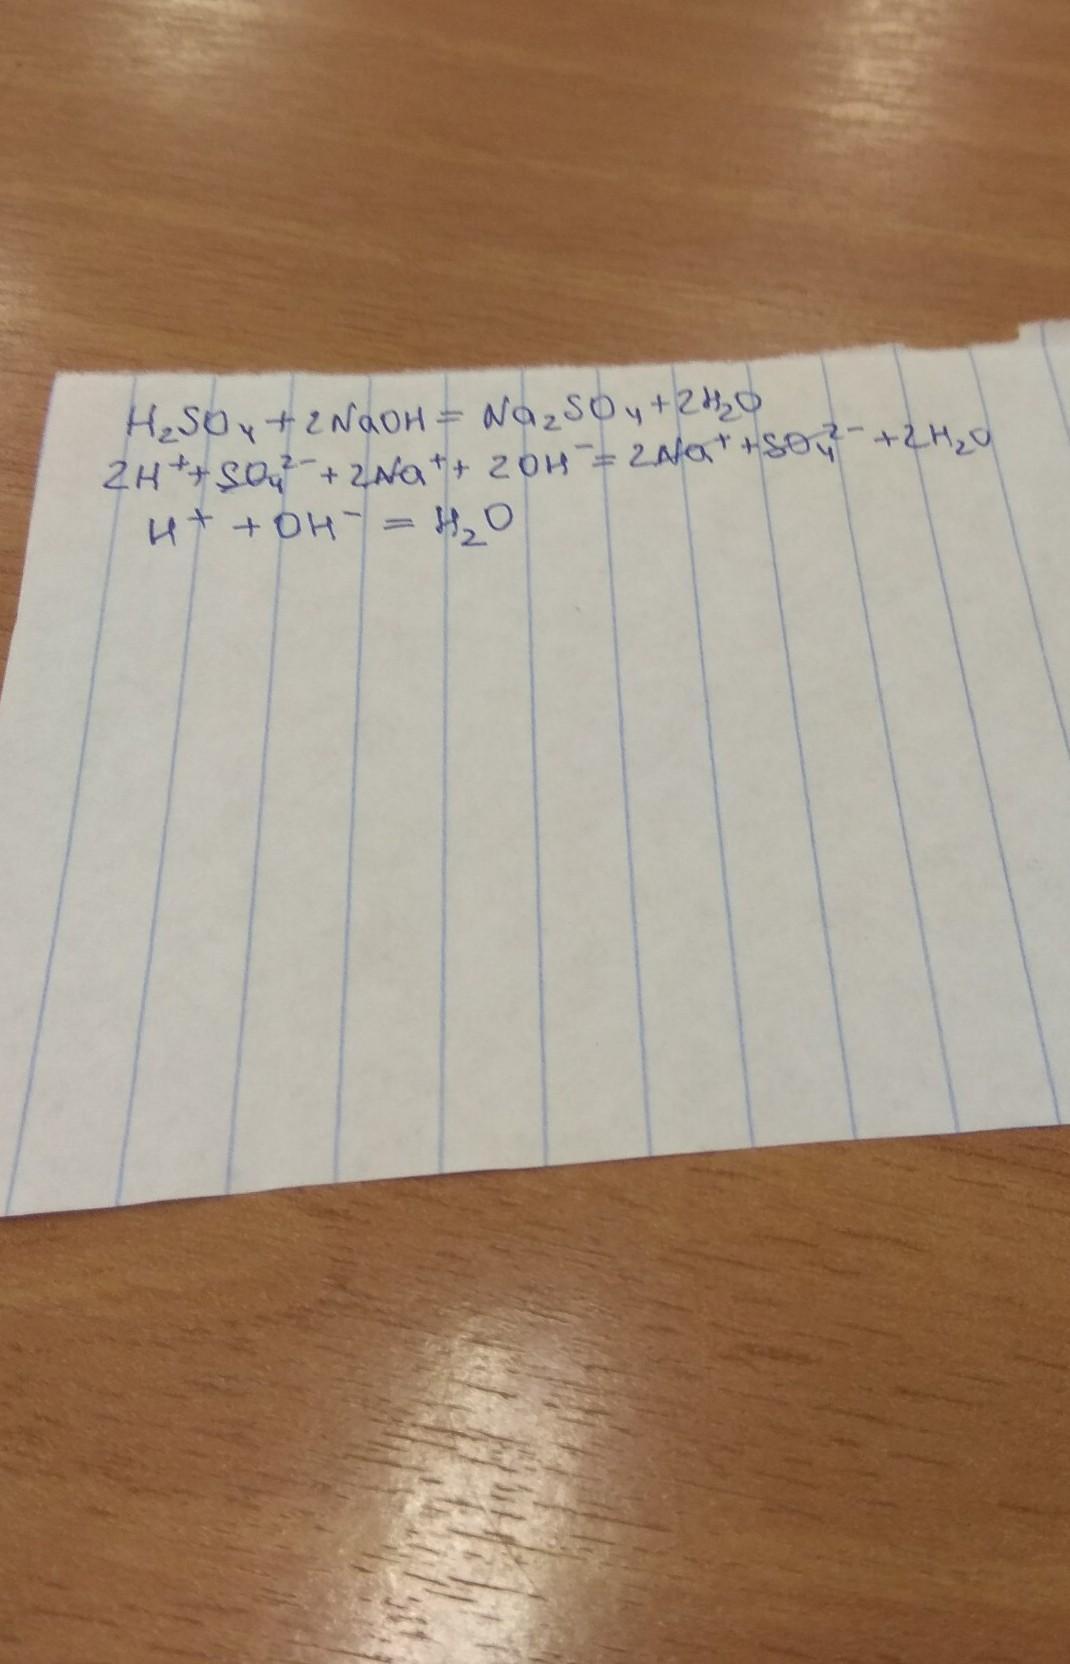 H₂SO₄ + 2NaOH = Na₂SO₄ + 2H₂O
2H⁺ + SO₄²⁻ + 2Na⁺ + 2OH⁻ = 2Na⁺ + SO₄²⁻ + 2H₂O
H⁺ + OH⁻ = H₂O